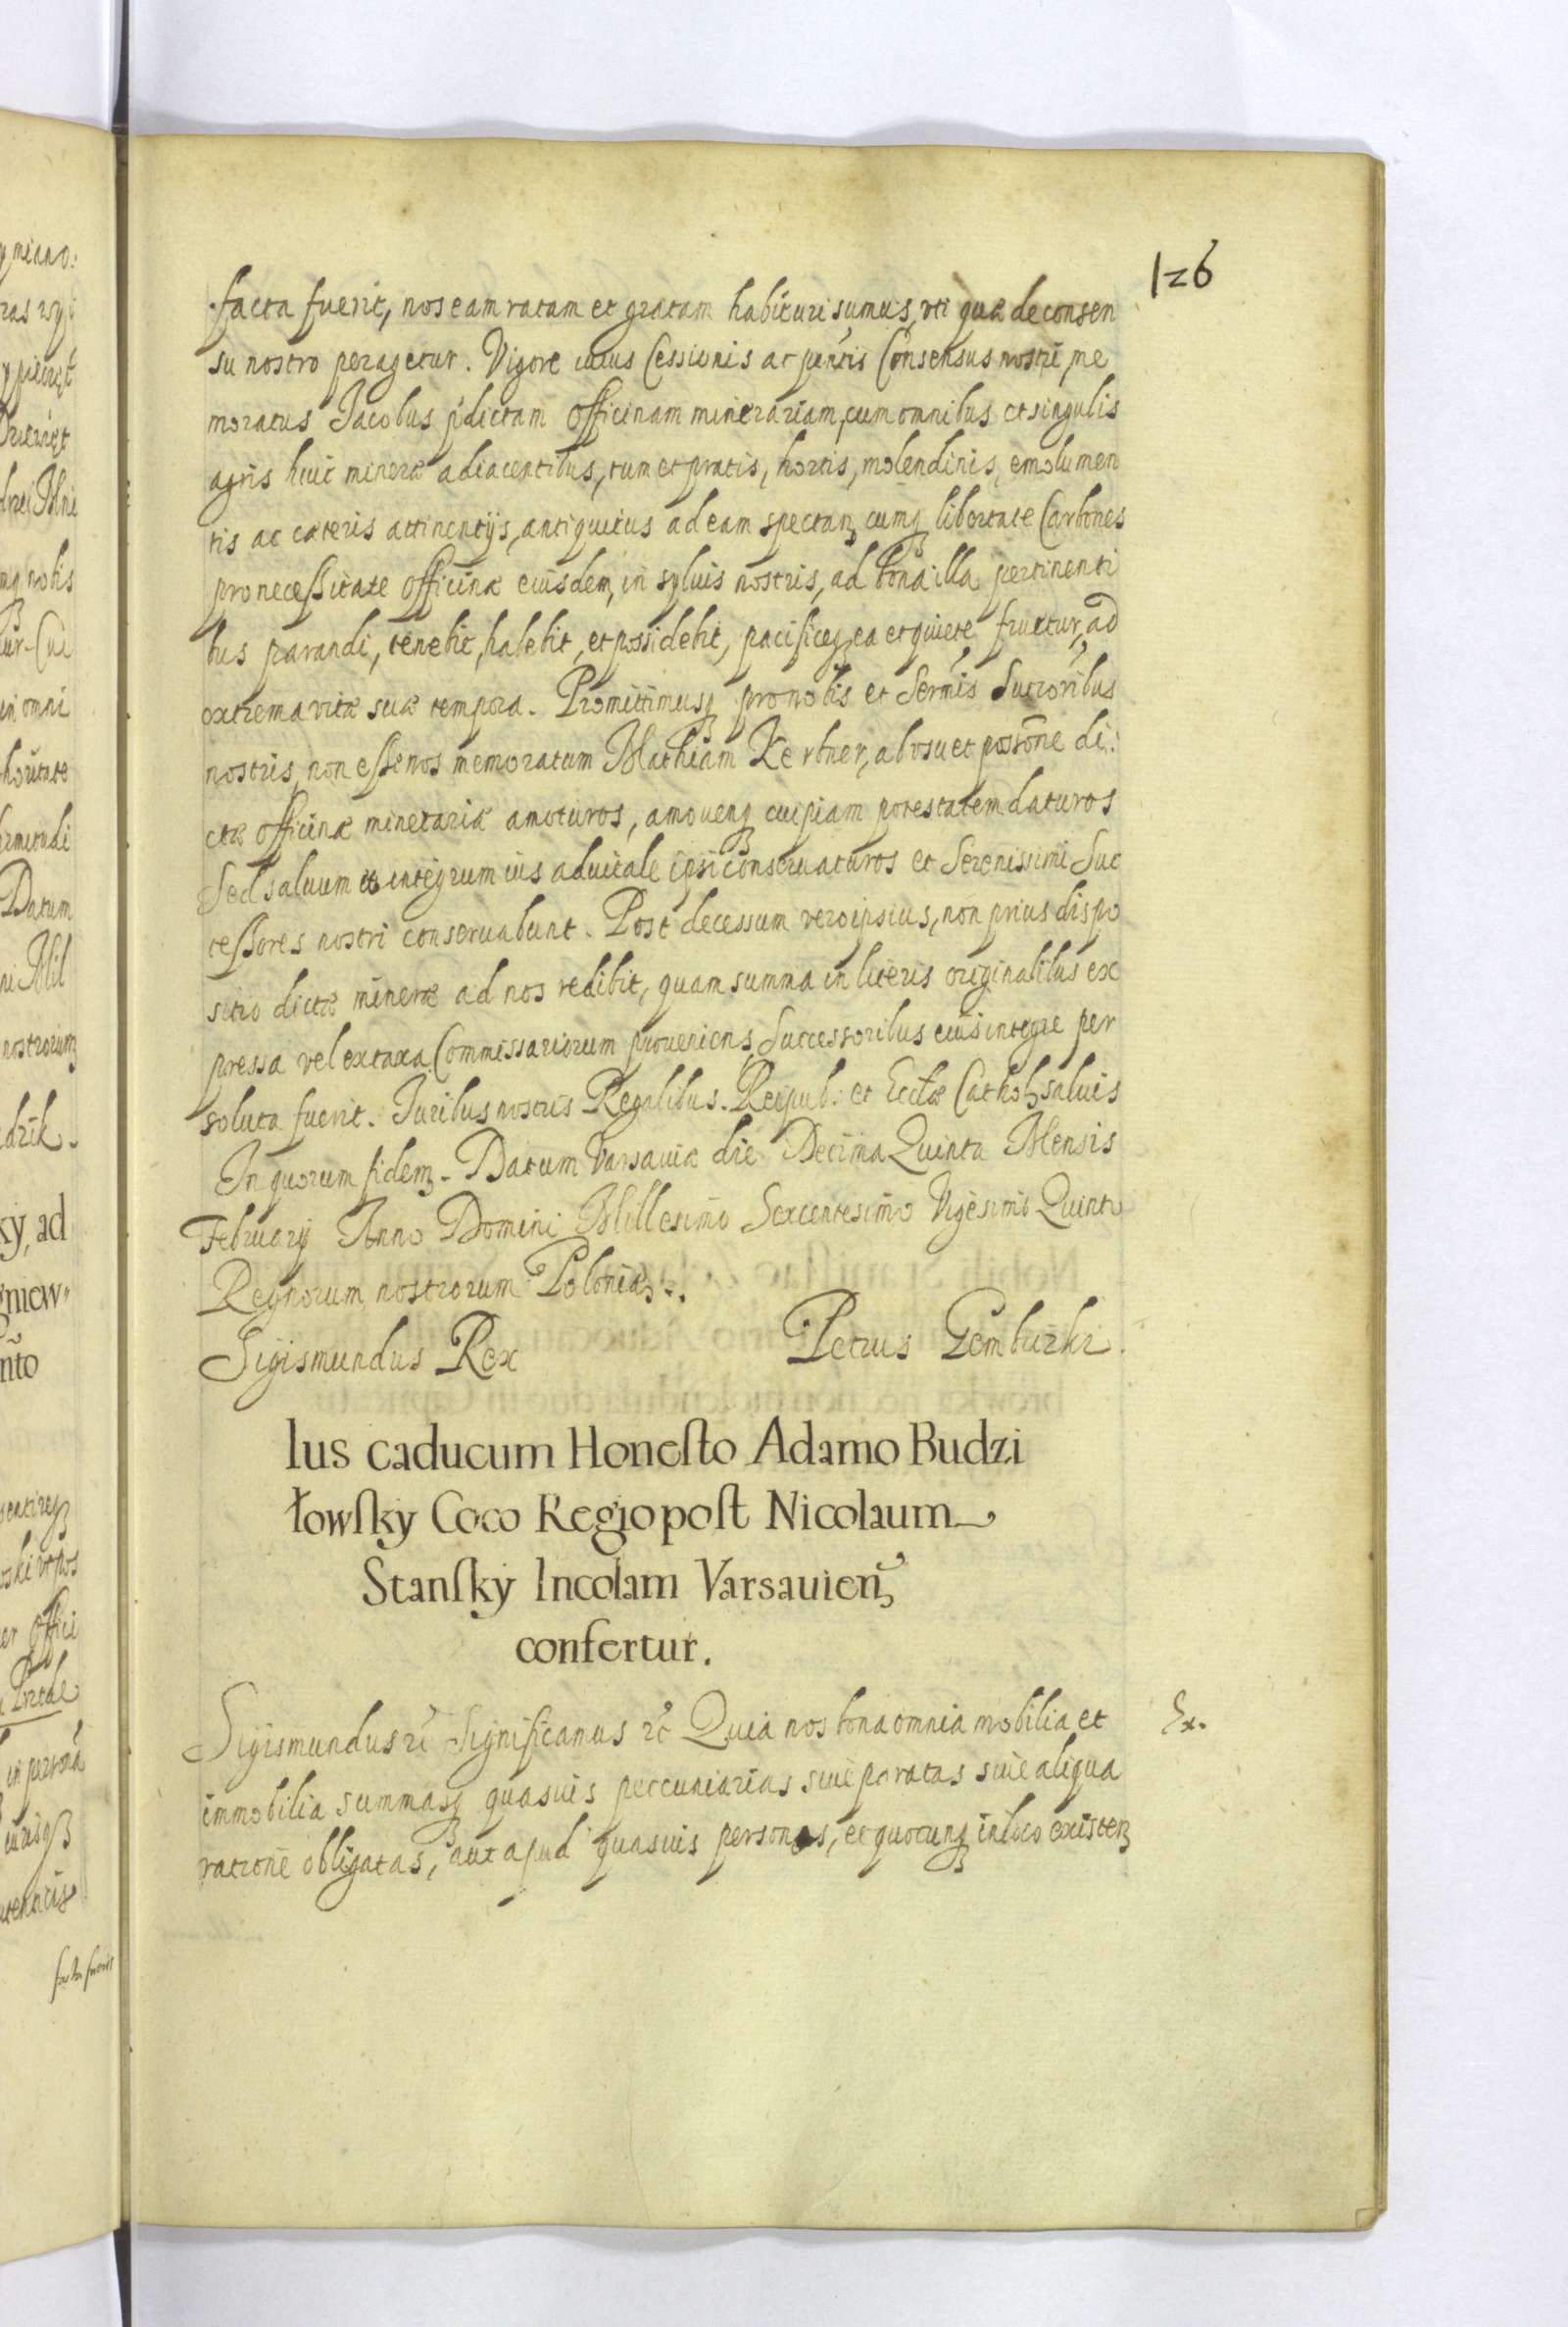 126
facta fuerit, nos eam ratam et gratam habituri sumus, uti quæ de consen
su nostro peragetur. Vigore cuius Cessionis ac pñtis Consensus nostri, me
moratus Jacobus pdictam Officinam minerariam, cum omnibus et singulis
agris huic mineræ adiacentibus, tum et pratis, hortis, molendinis, emolumen
tis ac cæteris attinentijs, antiquitus ad eam spectanꝫ cumqꝫ libertate Carbones
pro necessitate Officinæ eiusdem, in syluis nostris, ad bona illa pertinenti
bus parandi, tenebit, habebit, et possidebit, pacificeqꝫ ea et quiete fruetur, ad
extrema vitæ suæ tempora. Promittimusqꝫ pro nobis et Sermis Succoribus
nostris, non esse nos memoratum Mathiam Kerbner, ab usu et possõne di:
ctæ Officinæ minerariæ amoturos, amouenqꝫ cuipiam potestatem daturos
Sed saluum et integrum ius aduitale ipsi conseruaturos et Serenissimi Suc
cessores nostri conseruabunt. Post decessum vero ipsius, non prius dispo
sitio dictæ mineræ ad nos redibit, quam summa in literis originalibus ex
pressa vel ex taxa Commissariorum proueniens Successoribus eius integre per
soluta fuerit. Juribus nostris Regalibus. Reipub: et Ecclæ Catholꝫ saluis
In quorum fidemꝫ. Datum Varsauiæ die Decima Quinta Mensis
Februarij Anno Domini Millesimo Sexcentesimo Vigesimo Quinto
Regnorum nostrorum Poloniæꝫ.
Sigismundus Rex Petrus Gembizki.
Ius caducum Honesto Adamo Budzi
łowsky Coco Regio post Nicolaum
Stansky Incolam Varsauienꝫ
confertur.
Sigismundus rc Significamus rc Quia nos bona omnia mobilia et
immobilia summasqꝫ quasuis peccuniarias siue paratas siue aliqua
ratione obligatas, aut apud quasuis personas, et quocunqꝫ in loco existenꝫ
Ex.